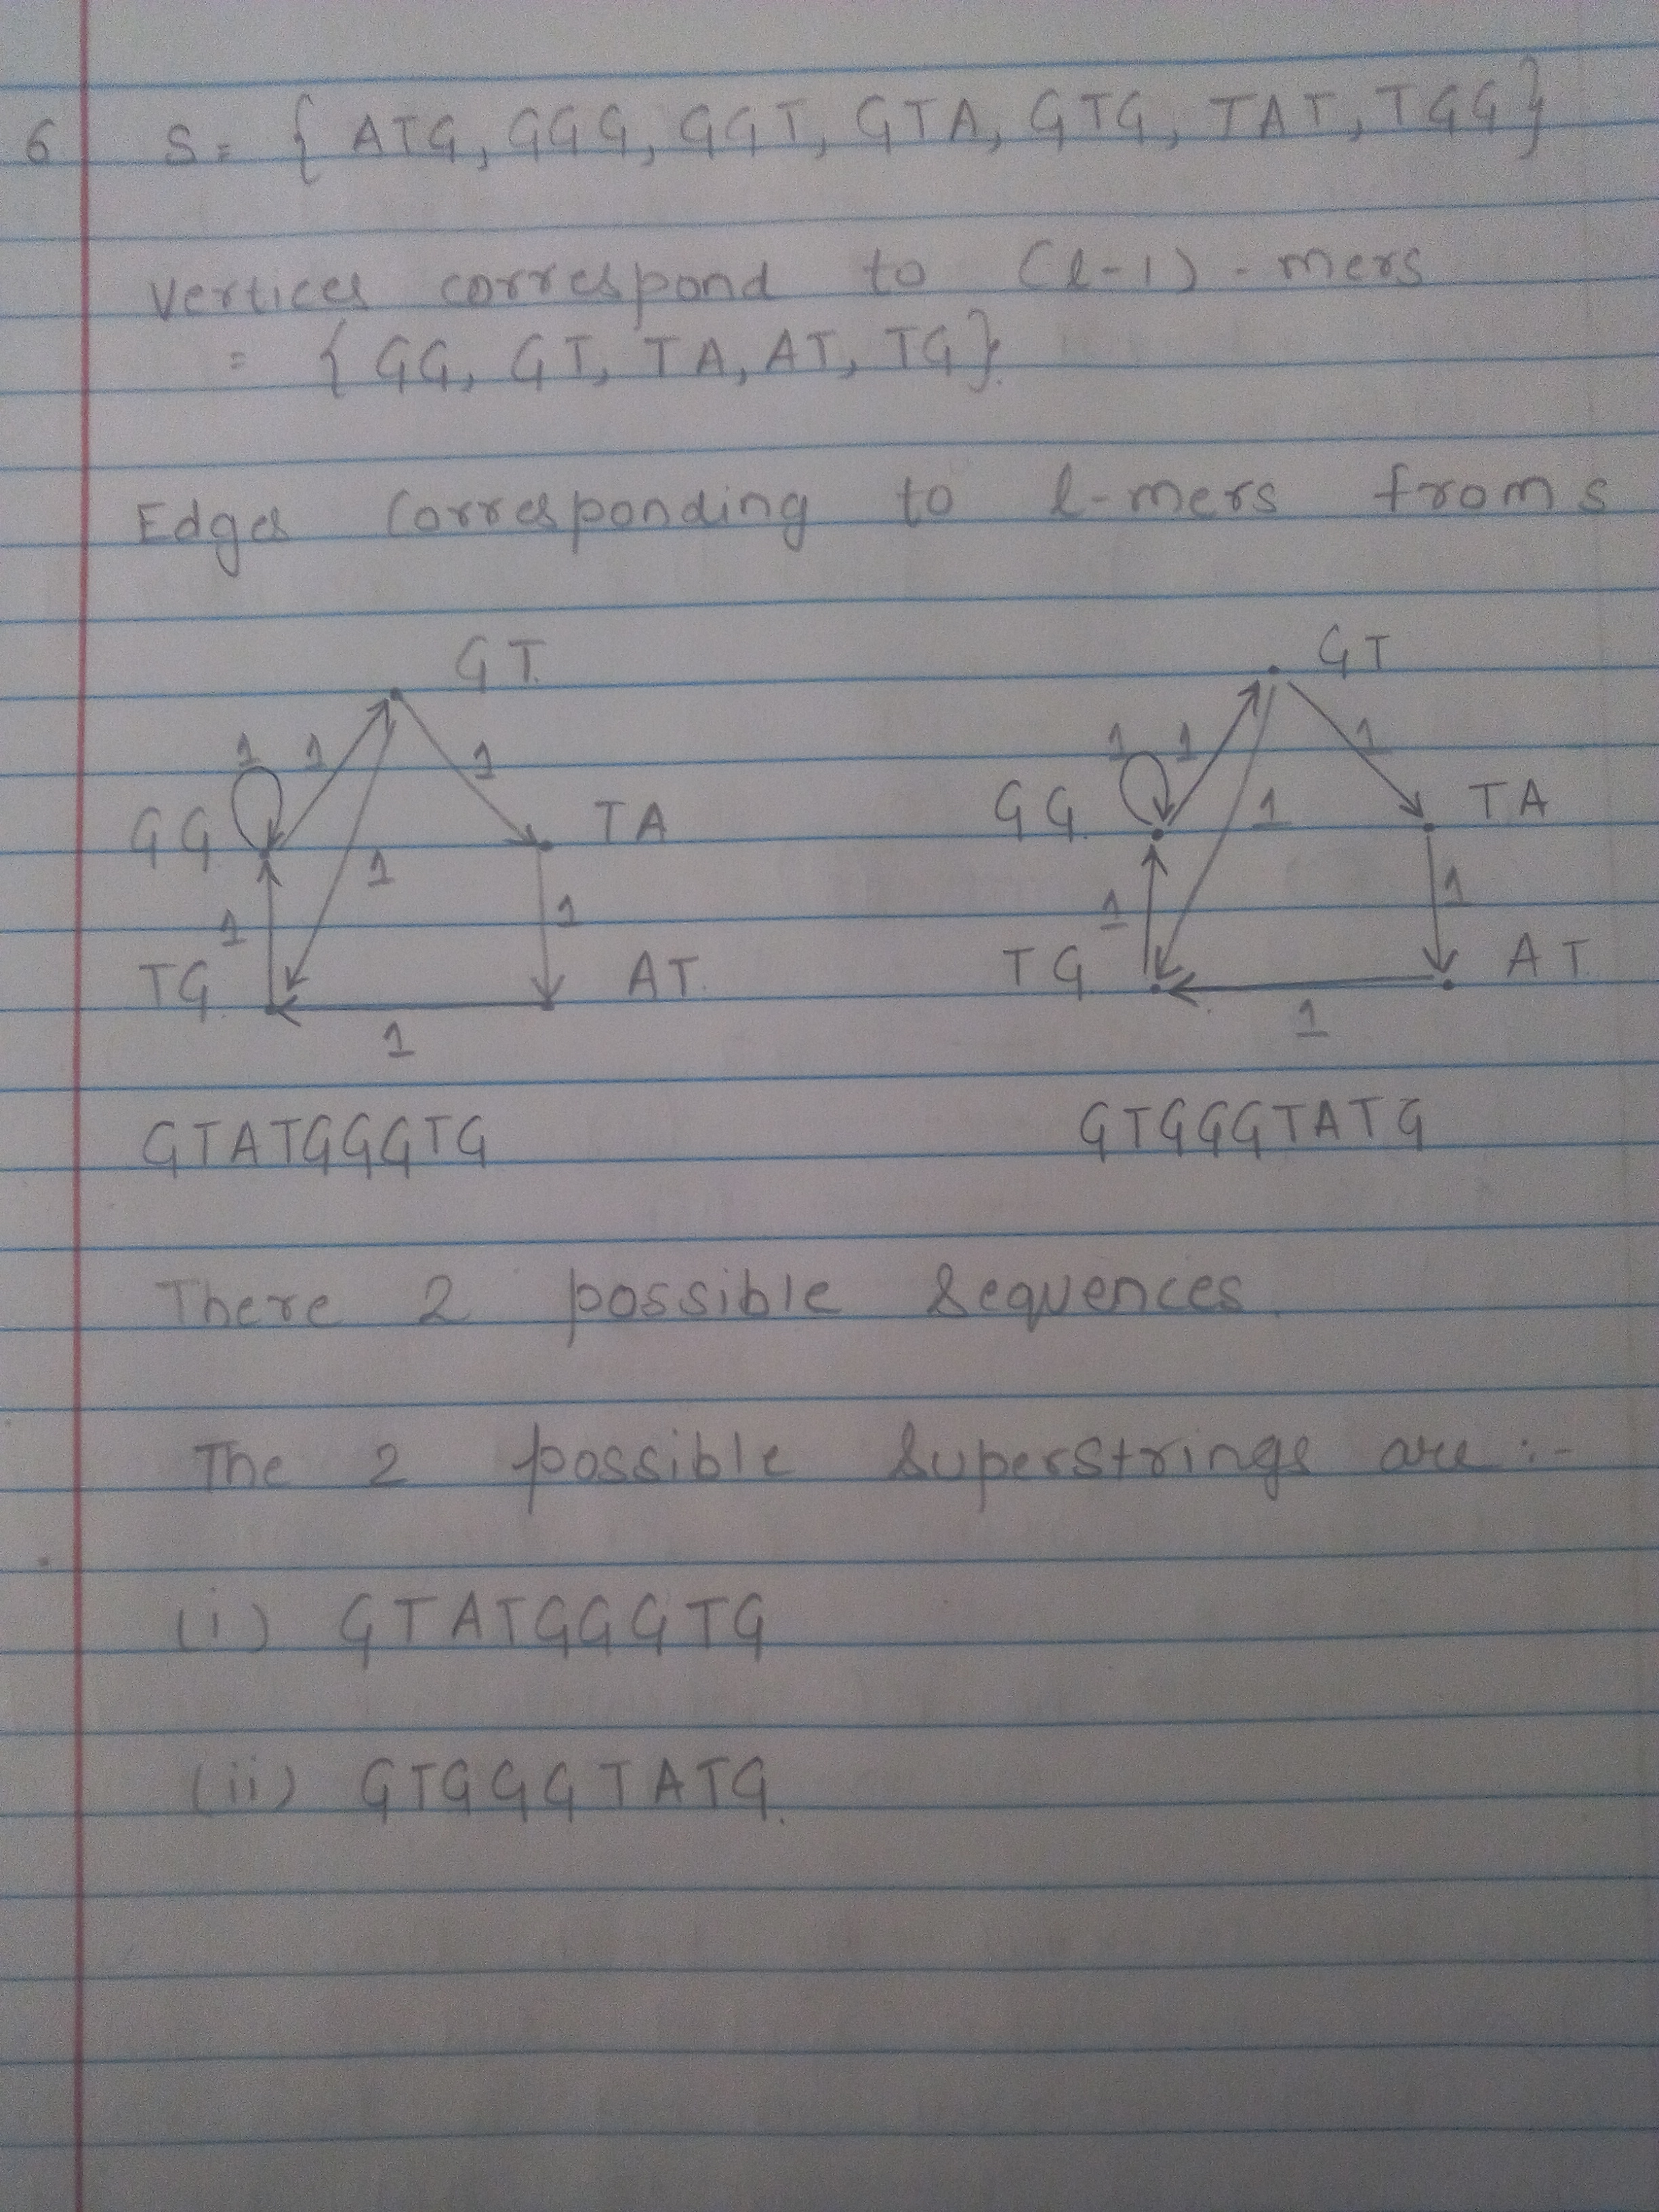 6 S = { ATG, GGG, GGT, GTA, GTG, TAT, TGG}
Vertices correspond to (l-1) - mers
= { GG, GT, TA, AT, TG}.
Edges Corresponding to l-mers from s
GT. GT
1 1 1 1 1 1
GG TA GG. TA
1 1
1 1 1 1
TG AT. TG AT
1 1
GTATGGGTG GTGGGTATG
There 2 possible Sequences.
The 2 possible Superstrings are :-
(i) GTATGGGTG
(ii) GTGGGTATG.